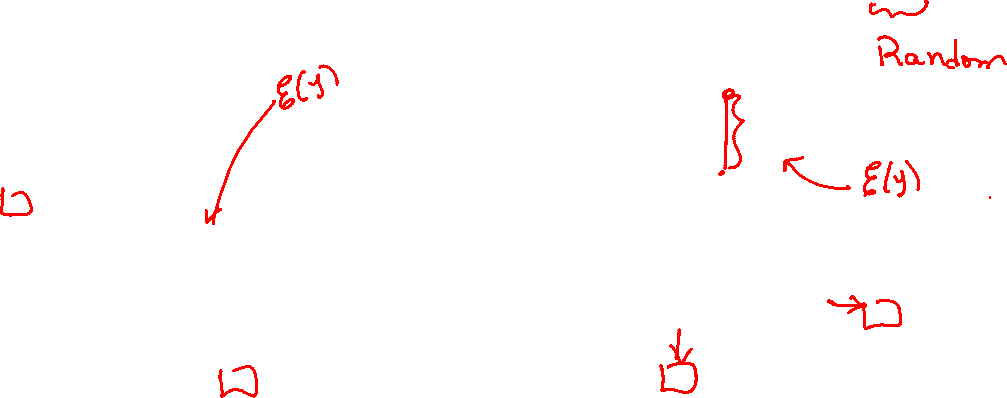 Random
E(y)
E(y)